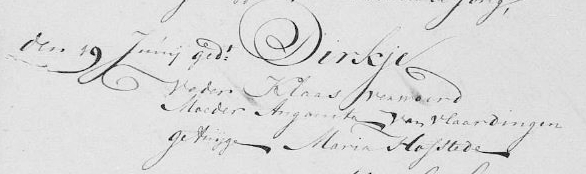 den 19 Junij ged: Dirkje
Vader Klaas Verwoerd
Moeder Angenita van Vlaardingen
getuijge Maria Hofstede